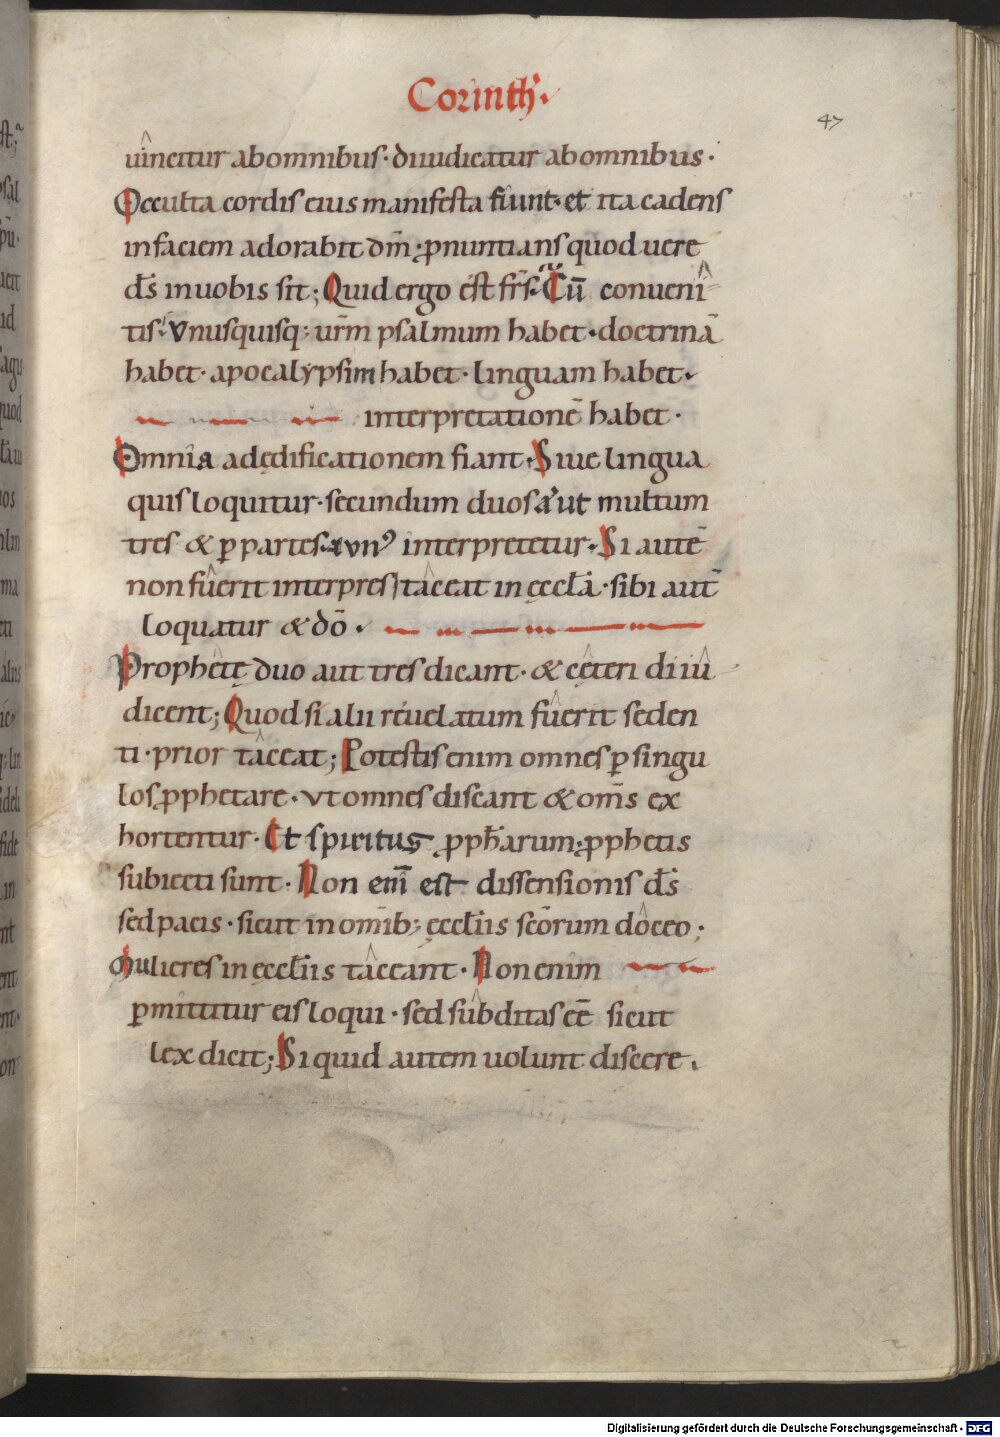 Corinth̄.
47
uîncitur abomnibus· diiudicatur abomnibus·
Occulta cordis eius manifesta fiunt· et ita cadens
infaciem adorabit dm̄· ꝓnuntians quod uere
ds̄ inuobis sit; Quid ergo est frs̄· Cū conuenî
tis· vnusquisq; urm̄ psalmum habet· doctrinā
habet· apocalẏpsim habet· linguam habet·
interpretationē habet·
Omnia adędificationem fiant· Siue lingua
quis loquitur· secundum duos aut ut multum
tres & ꝑ partes· & vnꝰ interpretetur· Si autē
non fûerit interpres tâceat in ęccła· sibi aut̄
loquatur & dō·
Prophêtę duo aut tres dicant· & cęteri diiû
dicent; Quod si alii reuelatum fûerit seden
ti· prior tâceat; Potestis enim omnes ꝑ singu
los ꝓphetare· vt omnes discant & oms̄ ex
hortentur· Et spiritus ꝓpħarum· ꝓphetis
subiecti sunt· Non enī est dissensionis ds̄
sed pacis· sicut in omīb; ęccłiis scōrum dôceo;
Mulieres in ęccłiis tâceant· Non enim
ꝑmittitur eis loqui· sed sûbditas eē sicut
lex dicit; Si quid autem uolunt discere·
Digitalisierung gefördert durch die Deutsche Forschungsgemeinschaft - DFG